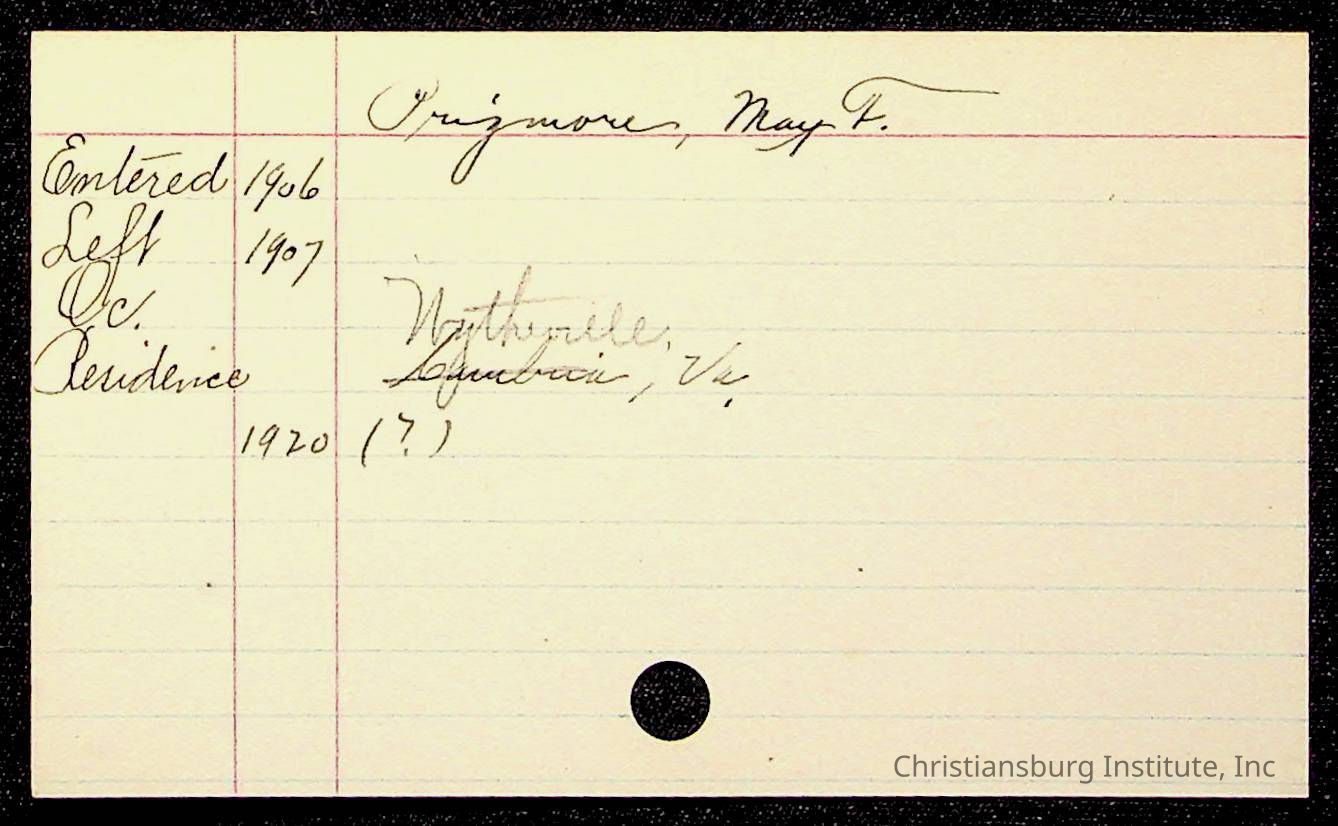 Prizmore, May F.
Entered 1906
Left 1907
Oc.
Wytheville,
Residence Cambria, Va.
1920 (?)
Christiansburg Institute, Inc